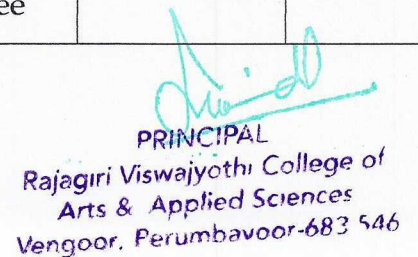 ee
PRINCIPAL
Rajagiri Viswajyothi College of
Arts & Applied Sciences
Vengoor, Perumbavoor-683 546